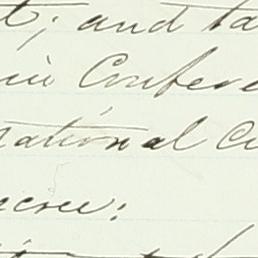 t; and ta
in Confere
rational Co
ecree: